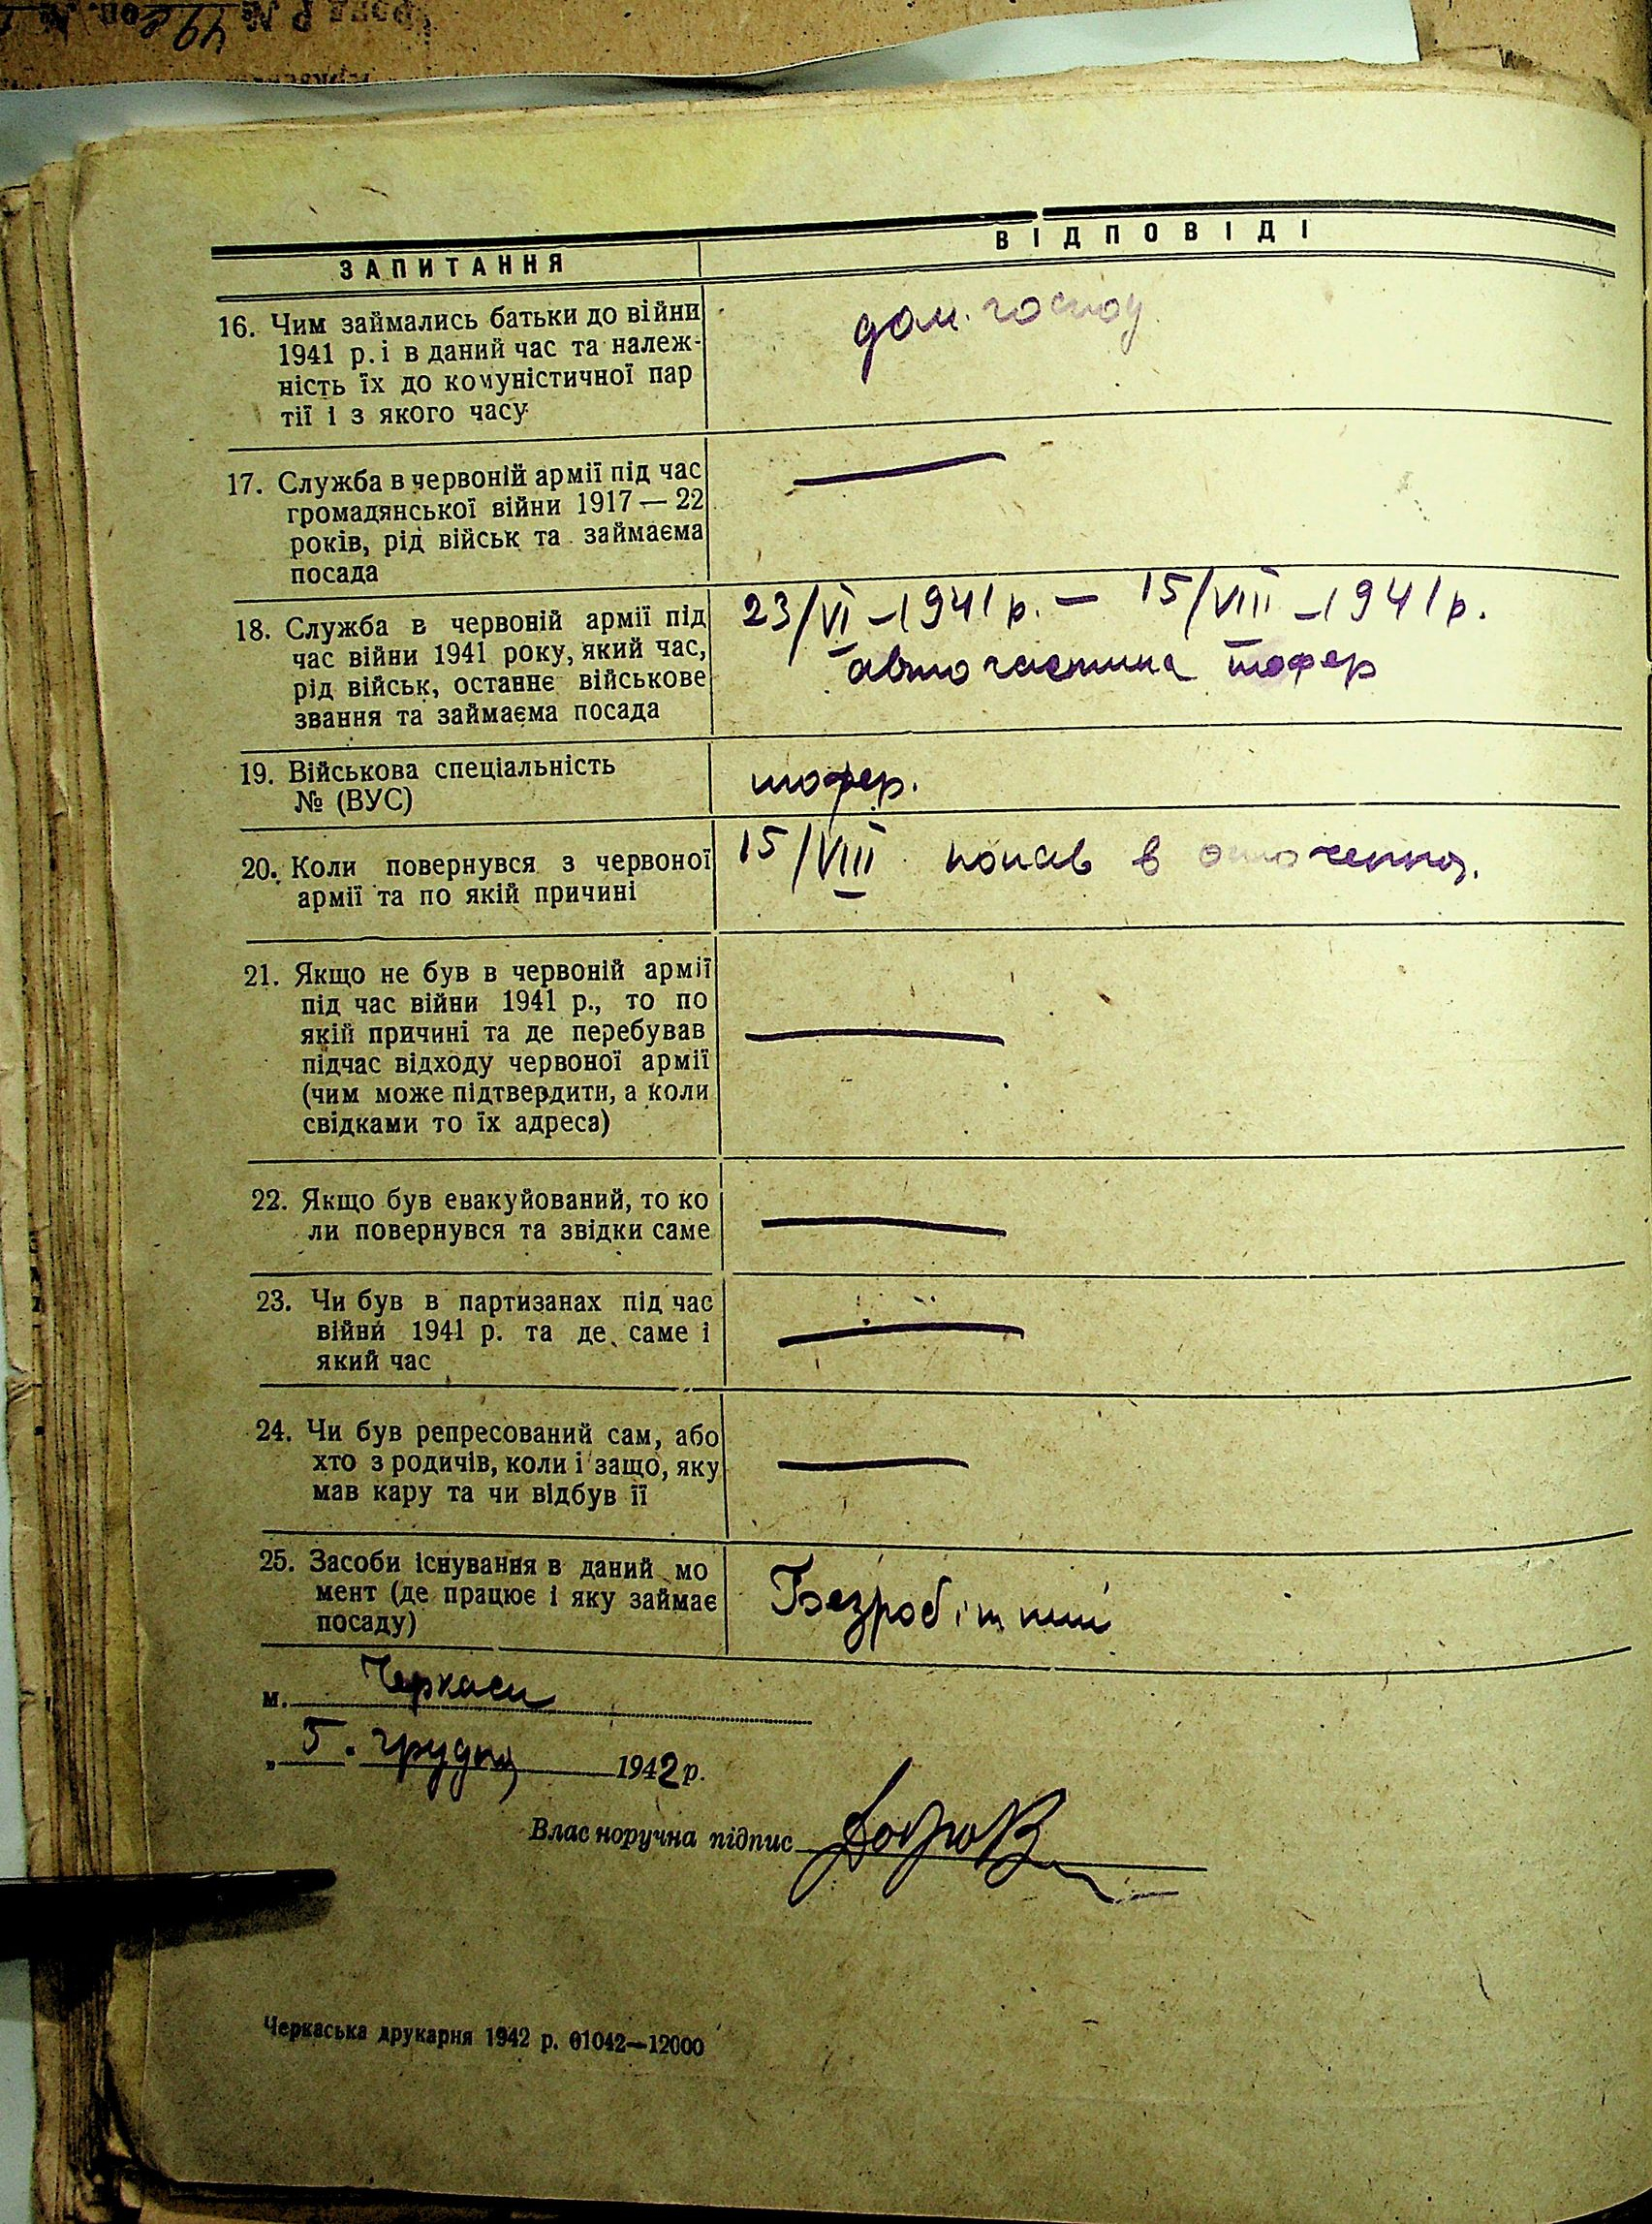 ЗАПИТАННЯ
ВІДПОВІДІ
16. Чим займались батьки до війни
1941 р. і в даний час та належ-
ність їх до комуністичної пар
тії і з якого часу
дом. господ
17. Служба в червоній армії під час
громадянської війни 1917 — 22
років, рід військ та займаєма
посада
—
18. Служба в червоній армії під
час війни 1941 року, який час,
рід військ, останнє військове
звання та займаєма посада
23/VI – 1941 р. — 15/VIII – 1941 р.
авто частина шофер
19. Військова спеціальність
№ (ВУС)
шофер.
20. Коли повернувся з червоної
армії та по якій причині
15/VIII попав в оточення.
21. Якщо не був в червоній армії
під час війни 1941 р., то по
якій причині та де перебував
підчас відходу червоної армії
(чим може підтвердити, а коли
свідками то їх адреса)
—
22. Якщо був евакуйований, то ко
ли повернувся та звідки саме
—
23. Чи був в партизанах під час
війни 1941 р. та де саме і
який час
—
24. Чи був репресований сам, або
хто з родичів, коли і защо, яку
мав кару та чи відбув її
—
25. Засоби існування в даний мо
мент (де працює і яку займає
посаду)
Безробітний
м. Черкаси
„ 5. грудня 1942 р.
Власноручна підпис
Черкаська друкарня 1942 р. 01042—12000